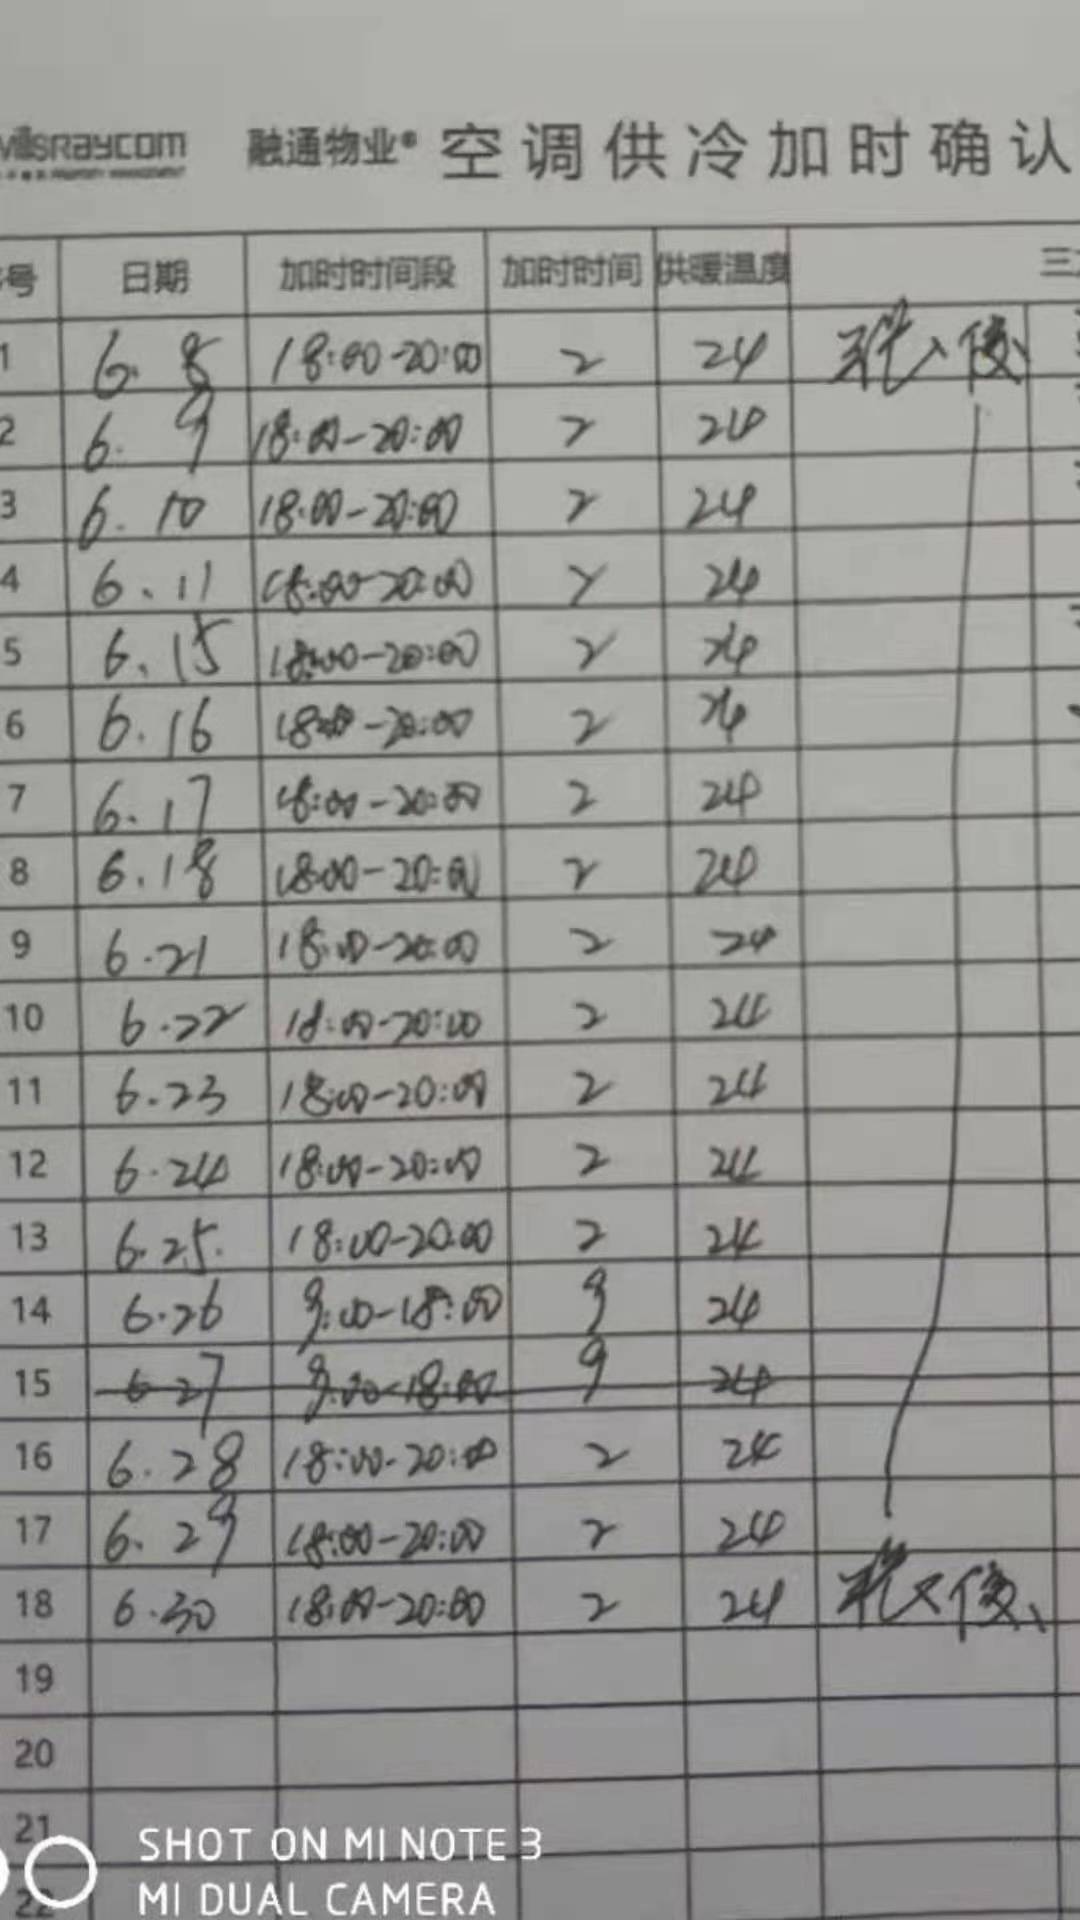 融通物业® 空调供冷加时确认
号 日期 加时时间段 加时时间 供暖温度
1 6.8 18:00-20:00 2 24
2 6.9 18:00-20:00 2 24
3 6.10 18:00-20:00 2 24
4 6.11 18:00-20:00 2 24
5 6.15 18:00-20:00 2 24
6 6.16 18:00-20:00 2 24
7 6.17 18:00-20:00 2 24
8 6.18 18:00-20:00 2 24
9 6.21 18:00-20:00 2 24
10 6.22 18:00-20:00 2 24
11 6.23 18:00-20:00 2 24
12 6.24 18:00-20:00 2 24
13 6.25 18:00-20:00 2 24
14 6.26 9:00-18:00 9 24
15 6.27 9:00-18:00 9 24
16 6.28 18:00-20:00 2 24
17 6.29 18:00-20:00 2 24
18 6.30 18:00-20:00 2 24
19
20
21
22
SHOT ON MI NOTE 3
MI DUAL CAMERA